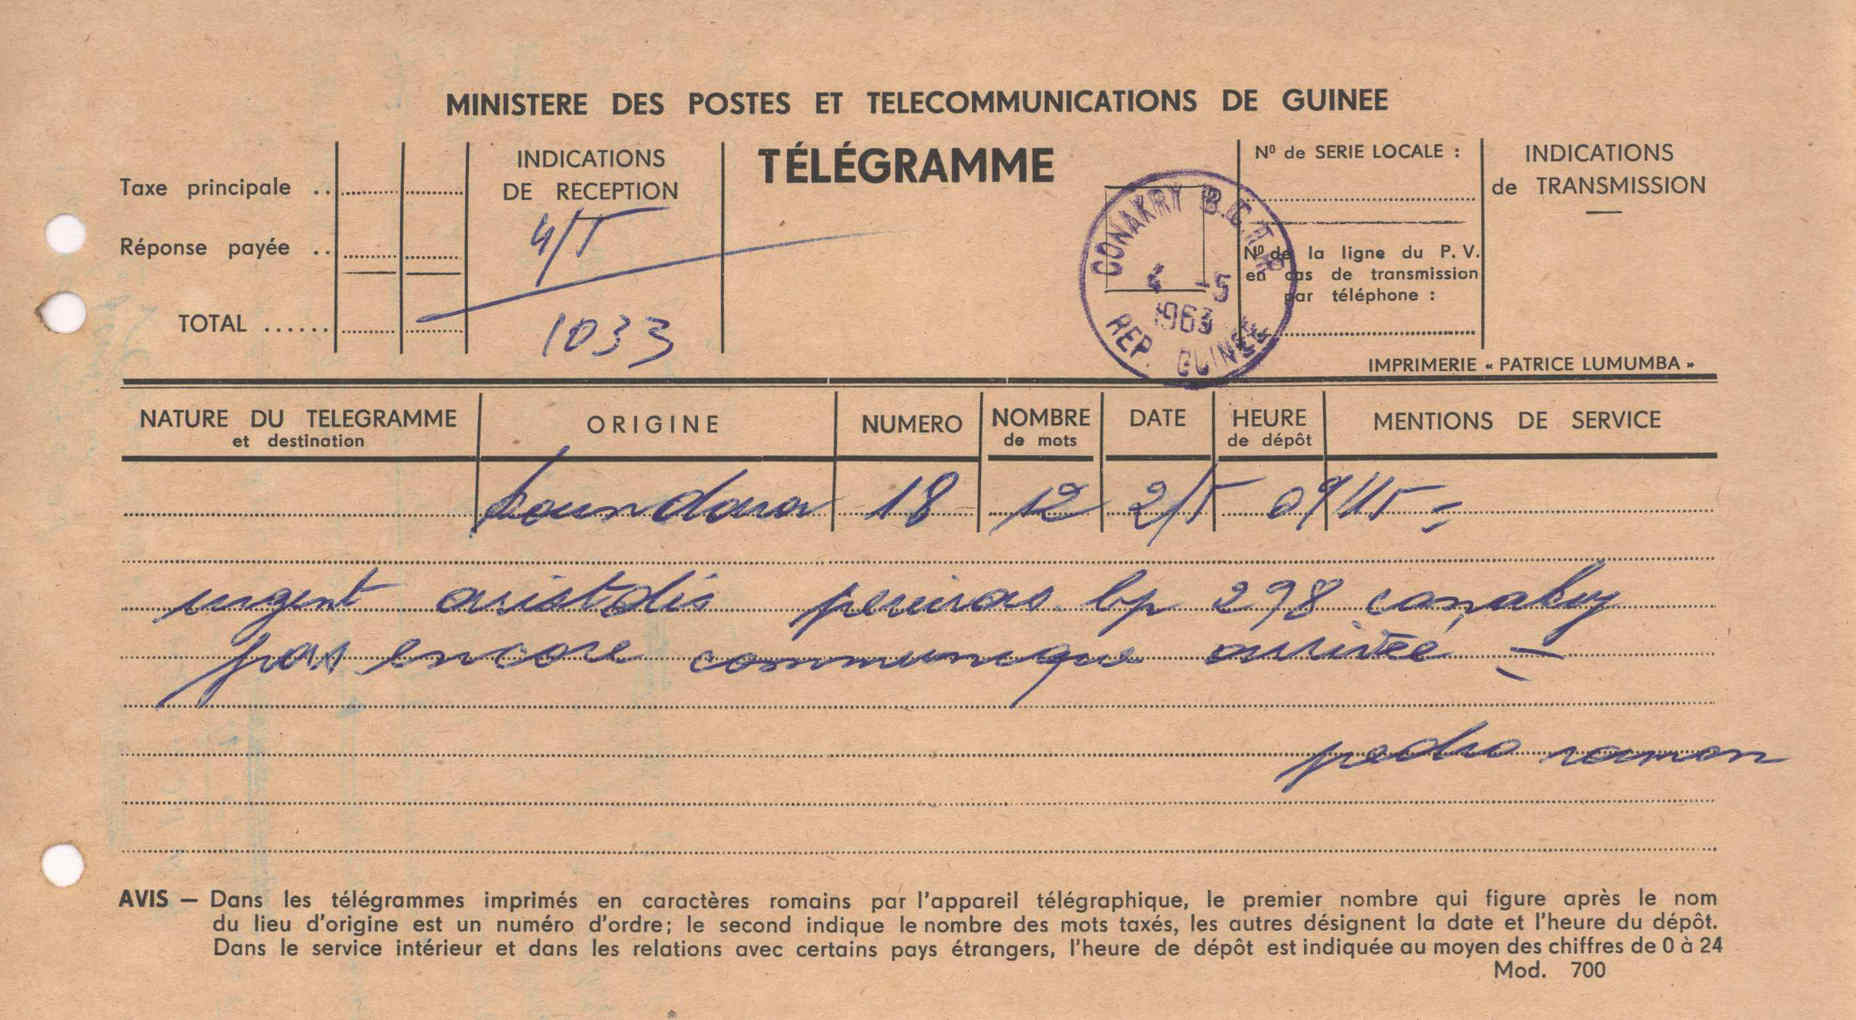 MINISTERE DES POSTES ET TELECOMMUNICATIONS DE GUINEE
Taxe principale ..
Réponse payée ..
TOTAL ......
INDICATIONS
DE RECEPTION
4/5
1033
TÉLÉGRAMME
CONAKRY B.C.T.R
4 -5
1963
REP. GUINEE
Nº de SERIE LOCALE :
Nº de la ligne du P. V.
en cas de transmission
par téléphone :
INDICATIONS
de TRANSMISSION
IMPRIMERIE « PATRICE LUMUMBA »
NATURE DU TELEGRAMME
et destination
ORIGINE
NUMERO
NOMBRE
de mots
DATE
HEURE
de dépôt
MENTIONS DE SERVICE
koundara 18 12 2/5 09/15 =
urgent aristdis pereiras bp 298 conakry
pas encore communique arrivée =
pedro ramon
AVIS — Dans les télégrammes imprimés en caractères romains par l'appareil télégraphique, le premier nombre qui figure après le nom
du lieu d'origine est un numéro d'ordre; le second indique le nombre des mots taxés, les autres désignent la date et l'heure du dépôt.
Dans le service intérieur et dans les relations avec certains pays étrangers, l'heure de dépôt est indiquée au moyen des chiffres de 0 à 24
Mod. 700